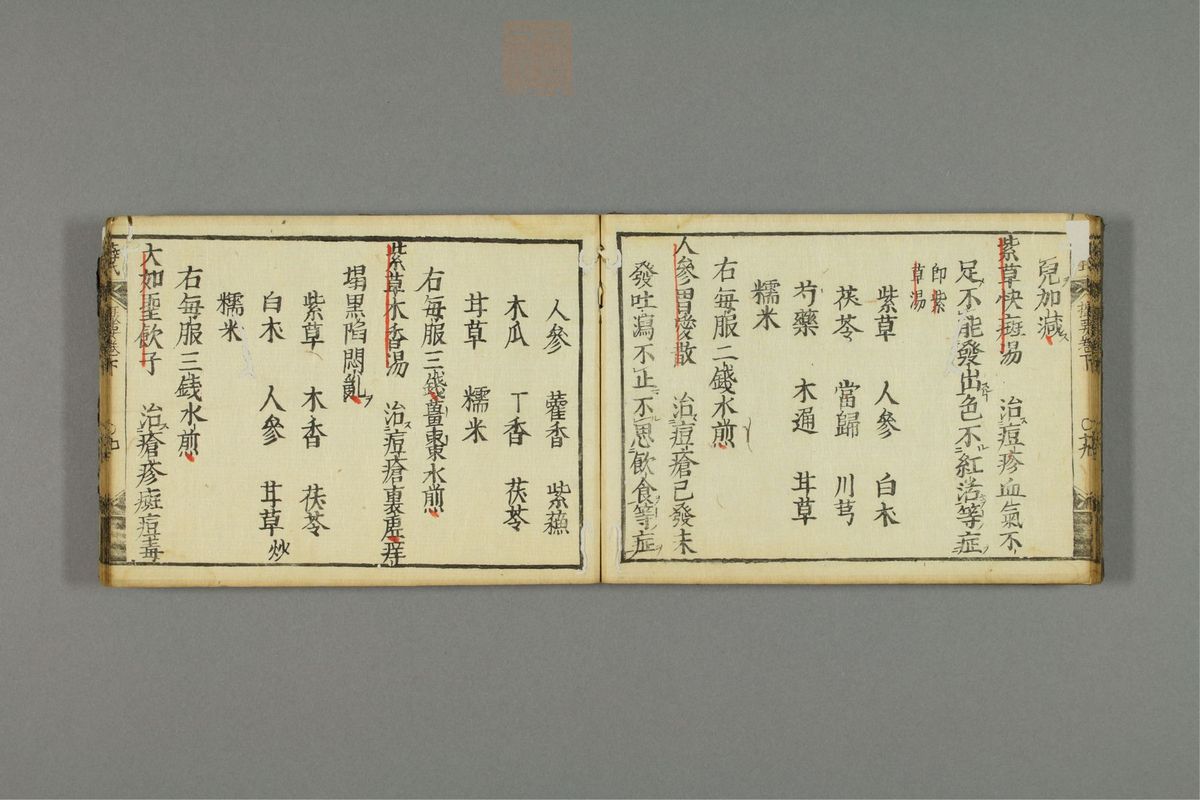 兒加減ス
紫草快斑湯　治ス痘疹血氣不
足不能發出色不紅活等症
即紫
草湯
紫草　人參　白朮
茯苓　當歸　川芎
芍藥　木通　甘草
糯米
右每服二錢水煎
人參胃愛散　治ス痘瘡已發未
發吐瀉不止不思飲食等症
人參　藿香　紫蘓
木瓜　丁香　茯苓
甘草　糯米
右每服三錢薑棗水煎
紫草木香湯　治ス痘瘡裏虛痒
塌黑陷悶亂
紫草　木香　茯苓
白朮　人參　甘草炒
糯米
右每服三錢水煎
大如聖飲子　治ス瘡疹斑痘毒